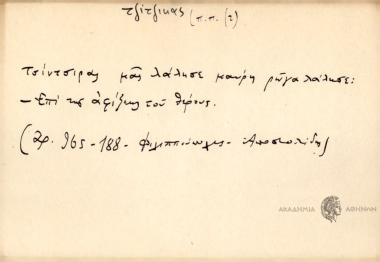 τζίτζικας (π.π. (τ)
Τσίντσιρας μᾶς λάλησε μαύρη ρῶγα λάλησε:
– Ἐπὶ τῆς ἀφίξεως τοῦ θέρους.
(Ἀρ. 965 - 188 - Φιλιππούπολις - Ἀποστολίδης)
ΑΚΑΔΗΜΙΑ ΑΘΗΝΩΝ